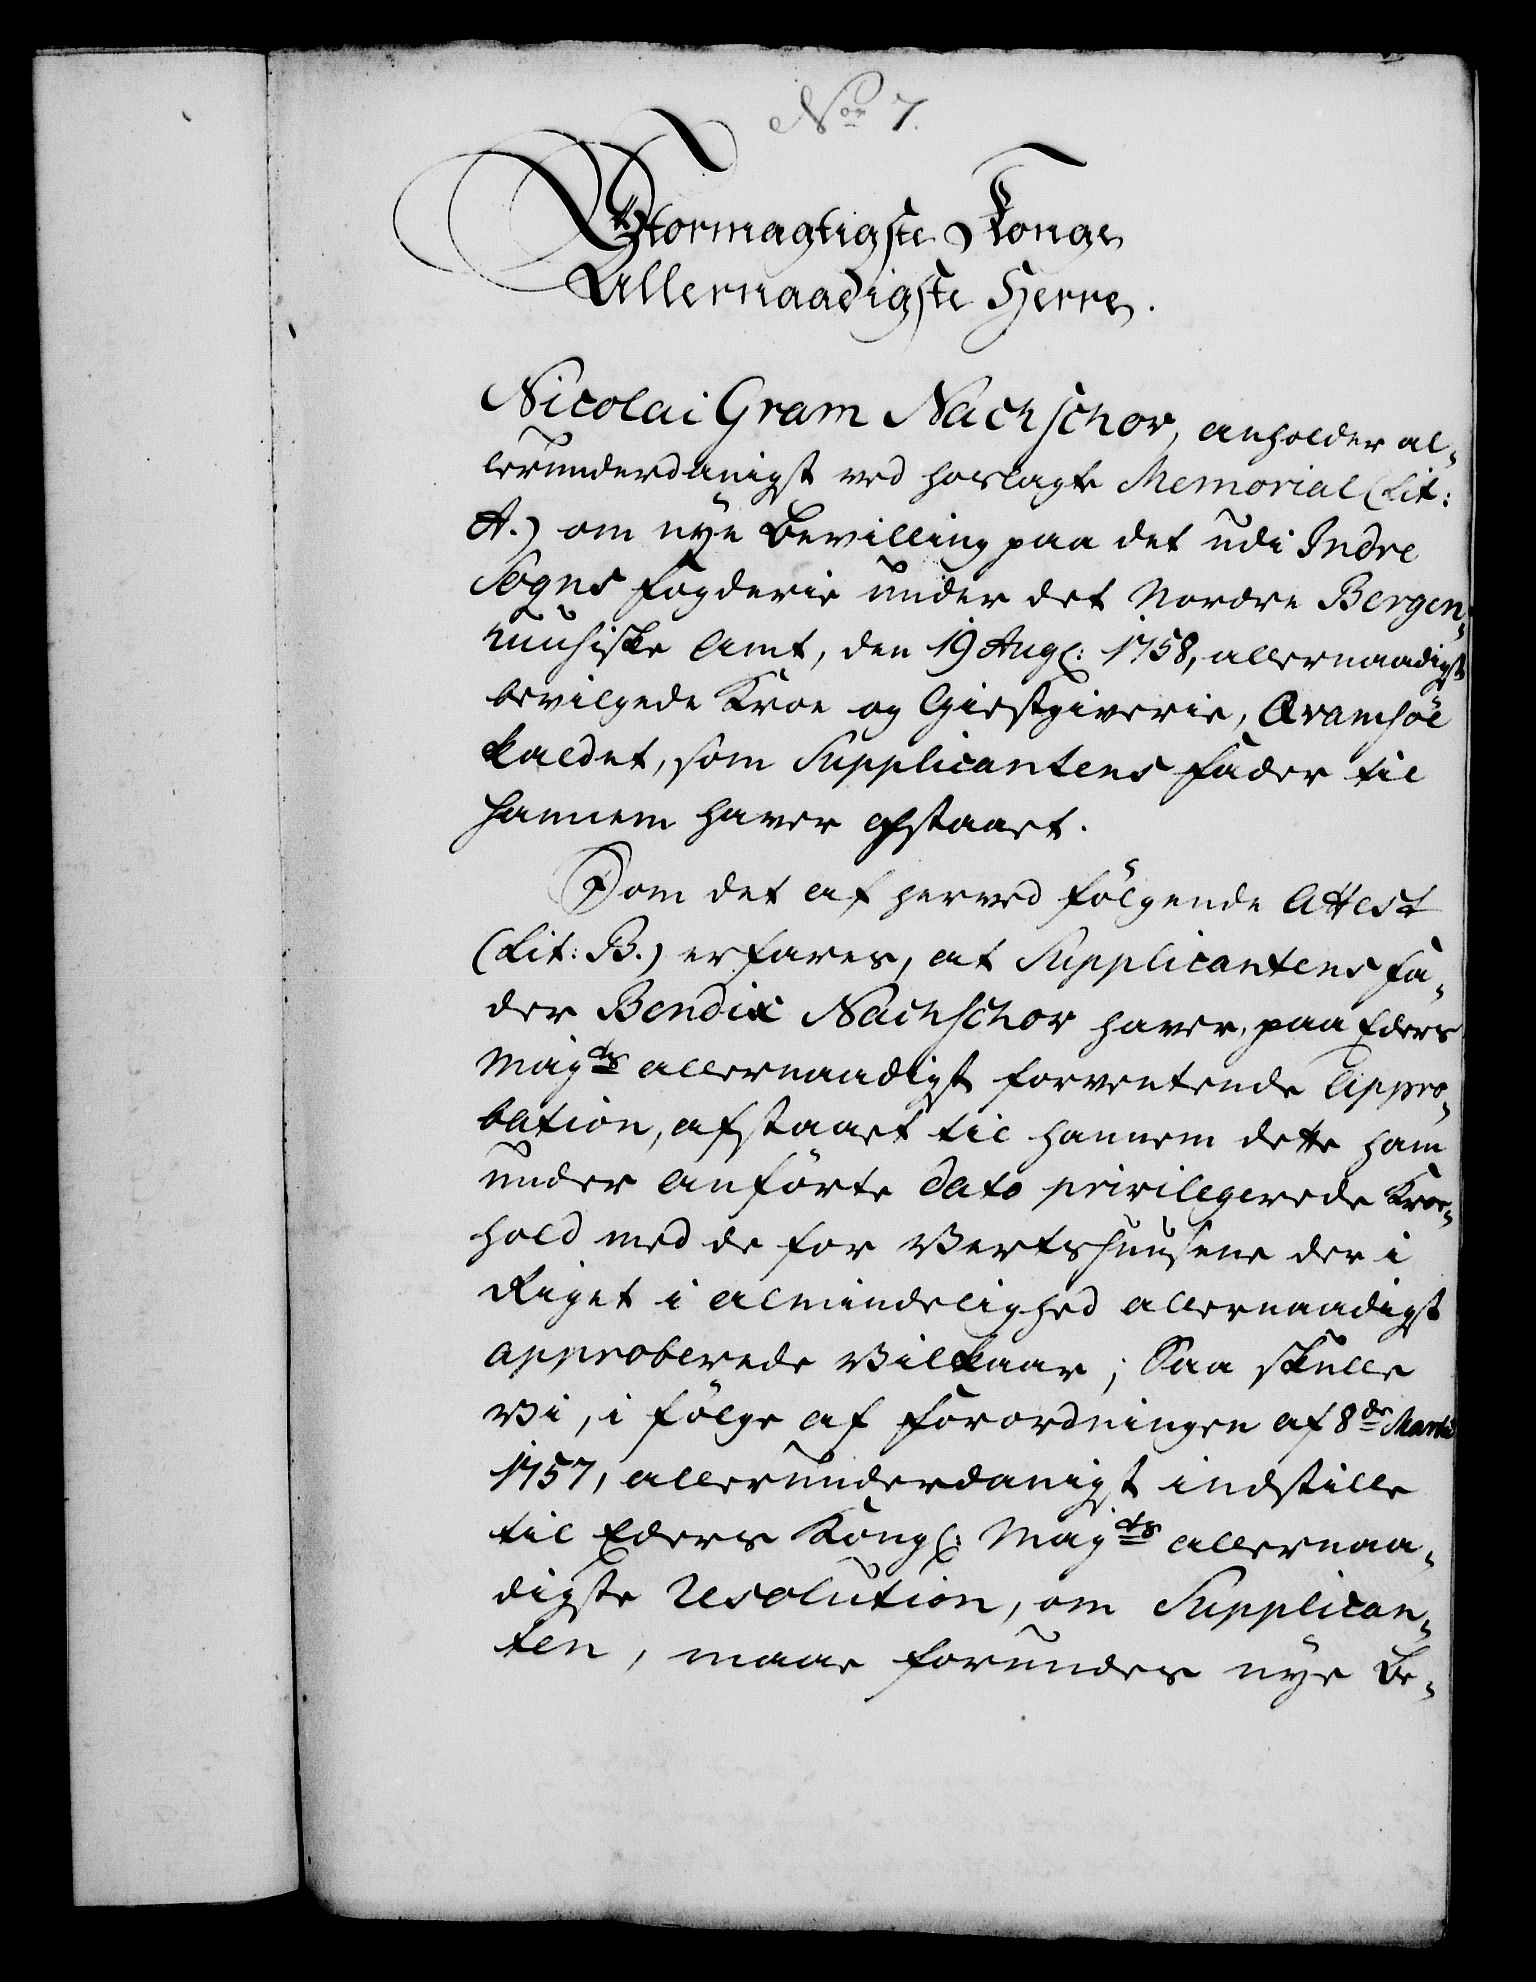 No 7.
Stormægtigste Konge
Allernaadigste Herre.
Nicolai Gram Nachschov, anholder al-
lerunderdanigst ved hoslagte Memorial (Lit:
A.) om nÿe Bevilling paa det udi Indre
Sogns Fogderie under det Nordre Bergen-
huusiske Amt, den 19 Aug: 1758, allernaadigst
bevilgede Kroe og Giestgiverie, Aramsöe
kaldet, som Supplicantens Fader til
hannem haver afstaaet.
Som det af herved fölgende Attest
(Lit: B.) erfares, at Supplicantens Fa-
der Bendix Nachschov haver, paa Eders
Mayts allernaadigst forventende Appro-
bation, afstaaet til hannem dette ham
under anförte Dato privilegerede Kroe-
hold med de for Vertshuusene der i
Riget i almindelighed allernaadigst
approberede Vilkaar; Saa skulle
Vi, i fölge af Forordningen af 8de Martii
1757, allerunderdanigst indstille
til Eders Kongl: Mayts allernaa-
digste Resolution, om Supplican-
ten, maae forundes nÿe Be-